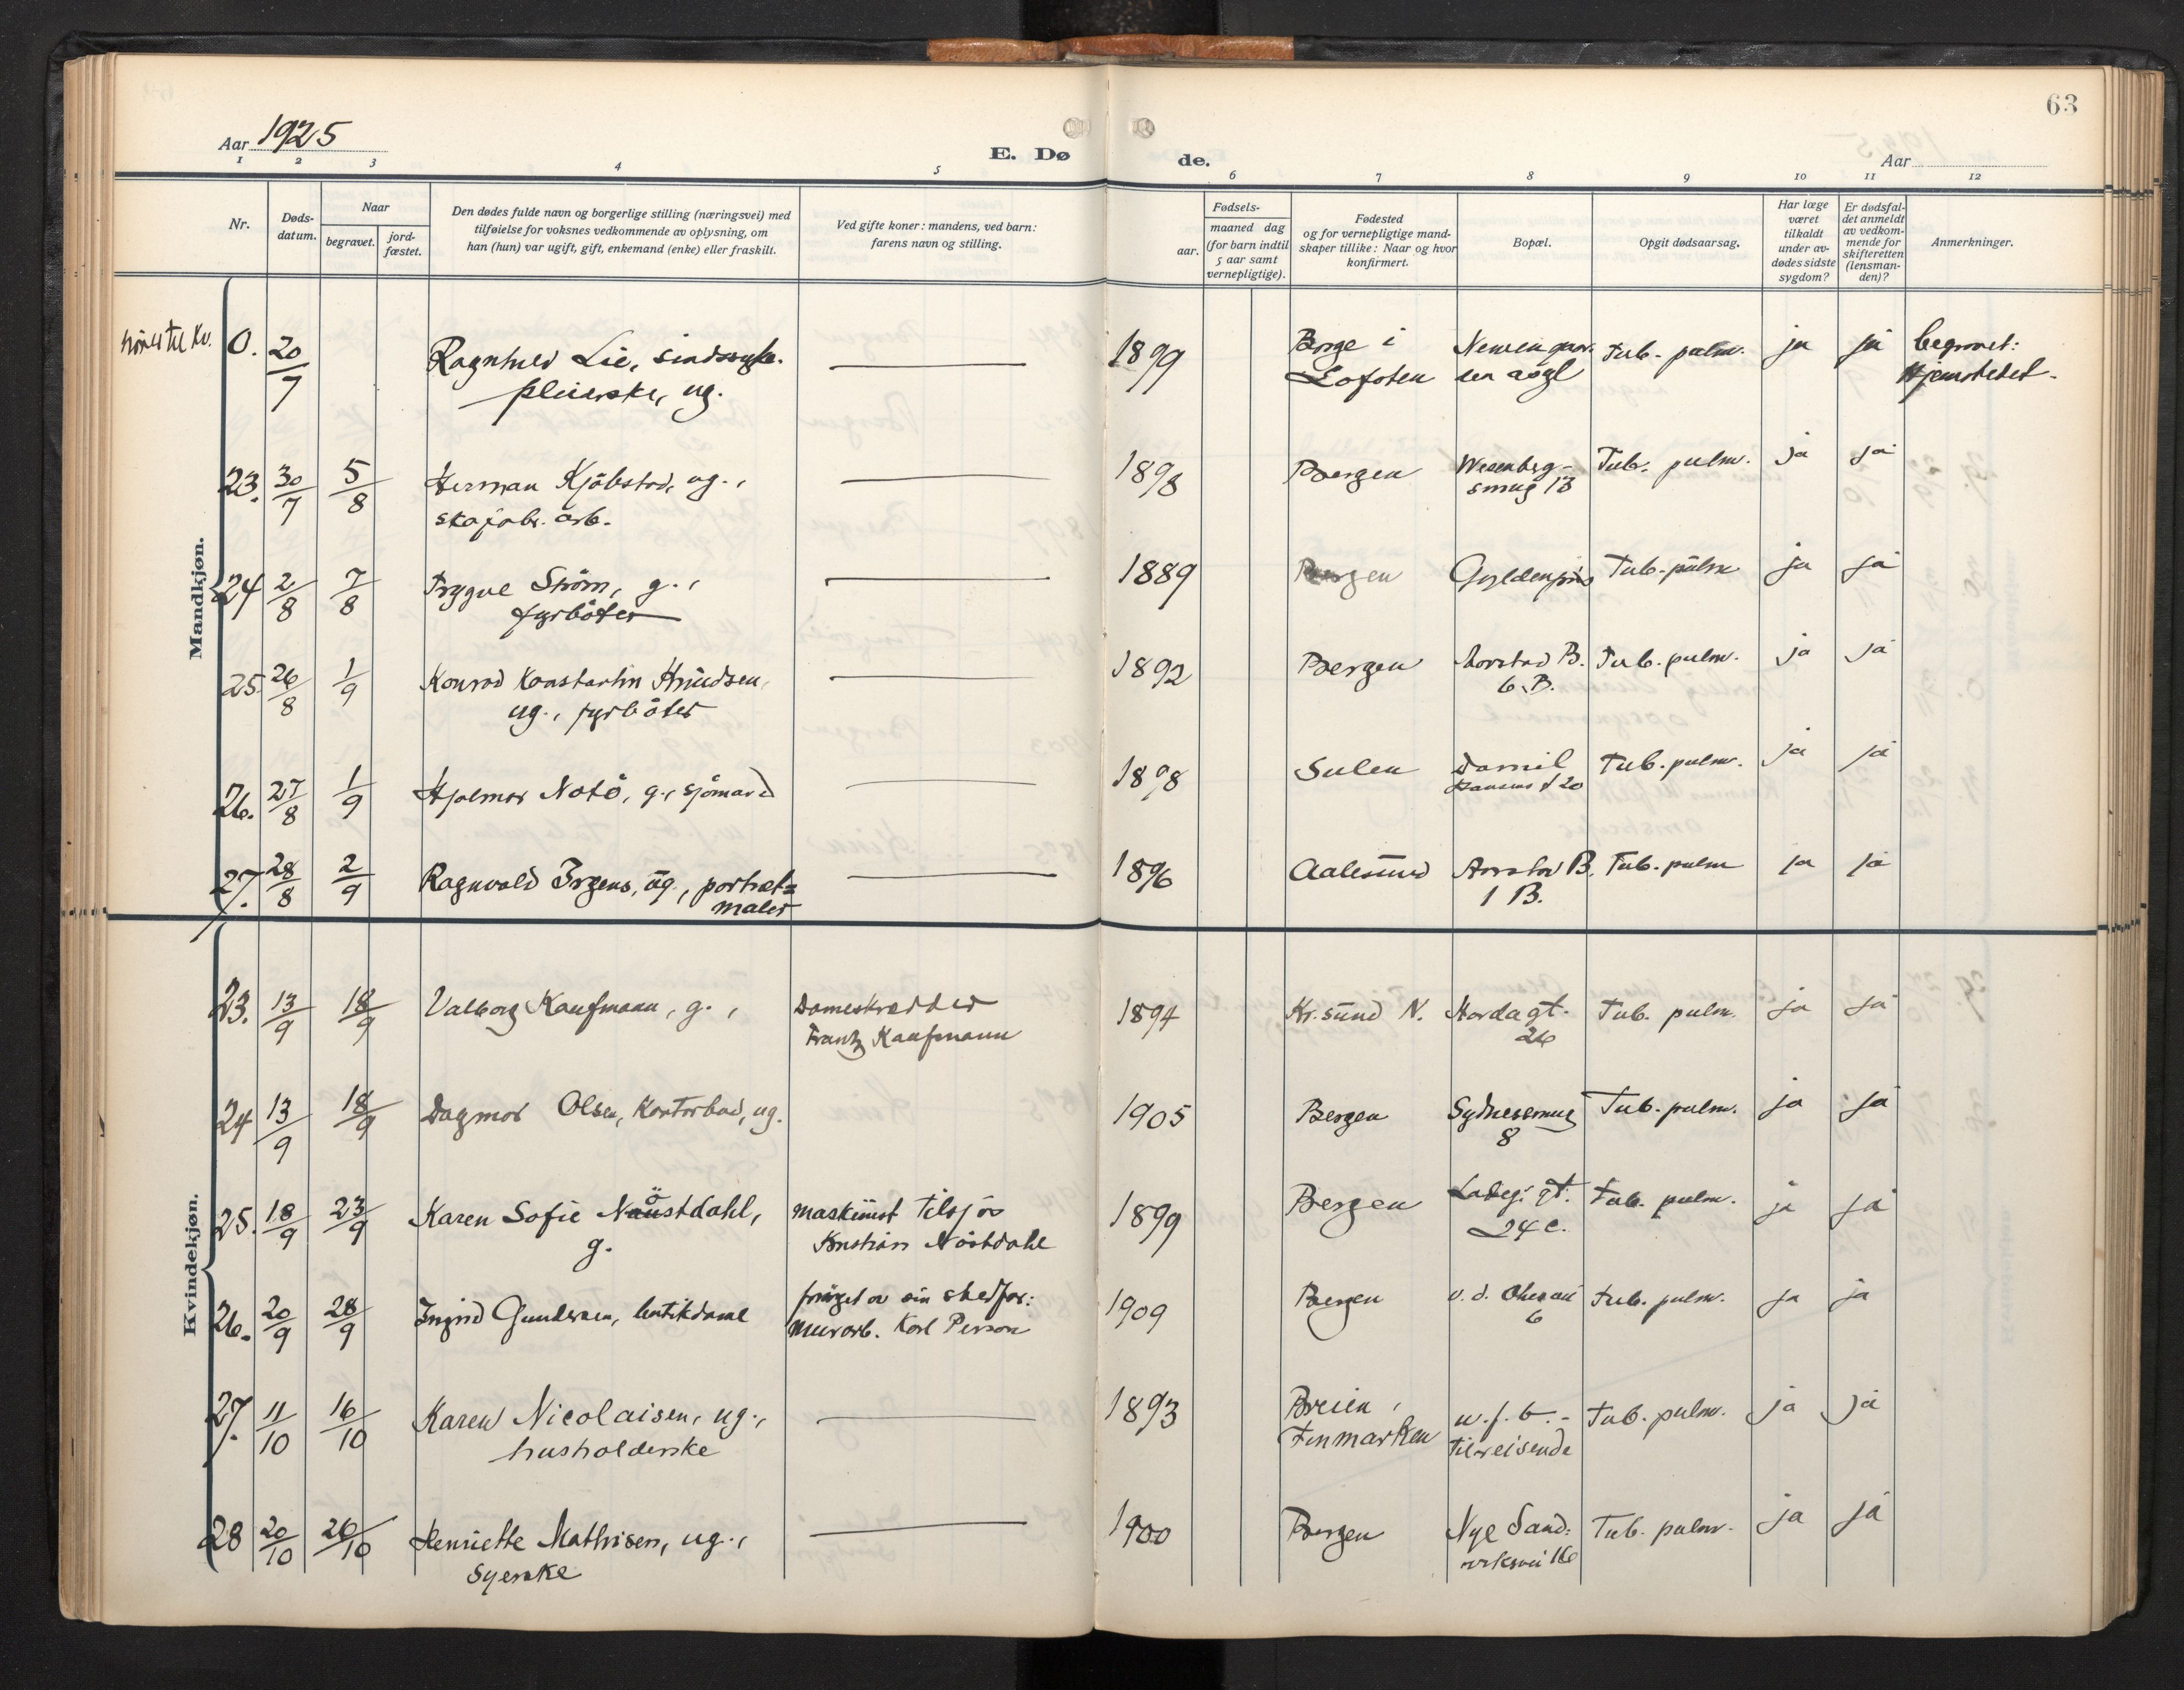 63
Aar 1925
E. Døde.
Aar
1 2 3 4 5 6 7 8 9 10 11 12
Nr.
Døds-
datum.
Naar
begravet.
jord-
fæstet.
Den dødes fulde navn og borgerlige stilling (næringsvei) med
tilføielse for voksnes vedkommende av oplysning, om
han (hun) var ugift, gift, enkemand (enke) eller fraskilt.
Ved gifte koner: mandens, ved barn:
farens navn og stilling.
Fødsels-
aar.
maaned dag
(for barn indtil
5 aar samt
vernepligtige).
Fødested
og for vernepligtige mand-
skaper tillike: Naar og hvor
konfirmert.
Bopæl.
Opgit dødsaarsag.
Har læge
været
tilkaldt
under av-
dødes sidste
sygdom?
Er dødsfal-
det anmeldt
av vedkom-
mende for
skifteretten
(lensman-
den)?
Anmerkninger.
Mandkjøn.
hører til Kv. 0. 20/7 Ragnhild Lie, sindssyke- 1899 Borge i Tub. pulm. ja ja begravet:
pleierske, ug. Lofoten Hjemstedet.
23. 30/7 5/8 Herman Kjöbstad, ug., 1898 Bergen Wesenberg- Tub. pulm. ja ja
arb. smug 13
24 2/8 7/8 Trygve Ström, g., 1889 Bergen Gyldenpris Tub. pulm ja ja
fyrböter
25. 26/8 1/9 Konrad Konstantin Knudsen, 1892 Bergen Aarstad B. Tub. pulm. ja ja
ug., fyrböter 6. B.
26. 27/8 1/9 Hjalmar Notö, g., sjömand 1898 Sulen Daniel Tub. pulm. ja ja
Hansens g 20
27. 28/8 2/9 Ragnvald Irgens, ug., portræt= 1896 Aalesund Aarstad B. Tub. pulm ja ja
maler 1 B.
Kvindekjøn.
23. 13/9 18/9 Valborg Kaufmann, g., Dameskrædder 1894 Kr.sund N. Hordagt. Tub. pulm. ja ja
Frantz Kaufmann 26
24 13/9 18/9 Dagmar Olsen, Kontorbud, ug. 1905 Bergen Sydnessmug Tub. pulm. ja ja
8
25. 18/9 23/9 Karen Sofie Naustdahl, maskinist tilsjös 1899 Bergen Ladeg. gt. Tub. pulm. ja ja
ö
g. Kristian Nöstdahl 24 c.
26. 20/9 28/9 Ingrid Gundersen, butikdame forsörget av sin stedfar: 1909 Bergen 6 Tub. pulm. ja ja
murarb. Karl Person
27. 11/10 16/10 Karen Nicolaisen, ug., 1893 u. f. b. - Tub. pulm. ja ja
husholderske Finmarken tilreisende
28 20/10 26/10 Henriette Mathisen, ug., 1900 Bergen Nye Sand- Tub. pulm. ja ja
syerske viksvei 16